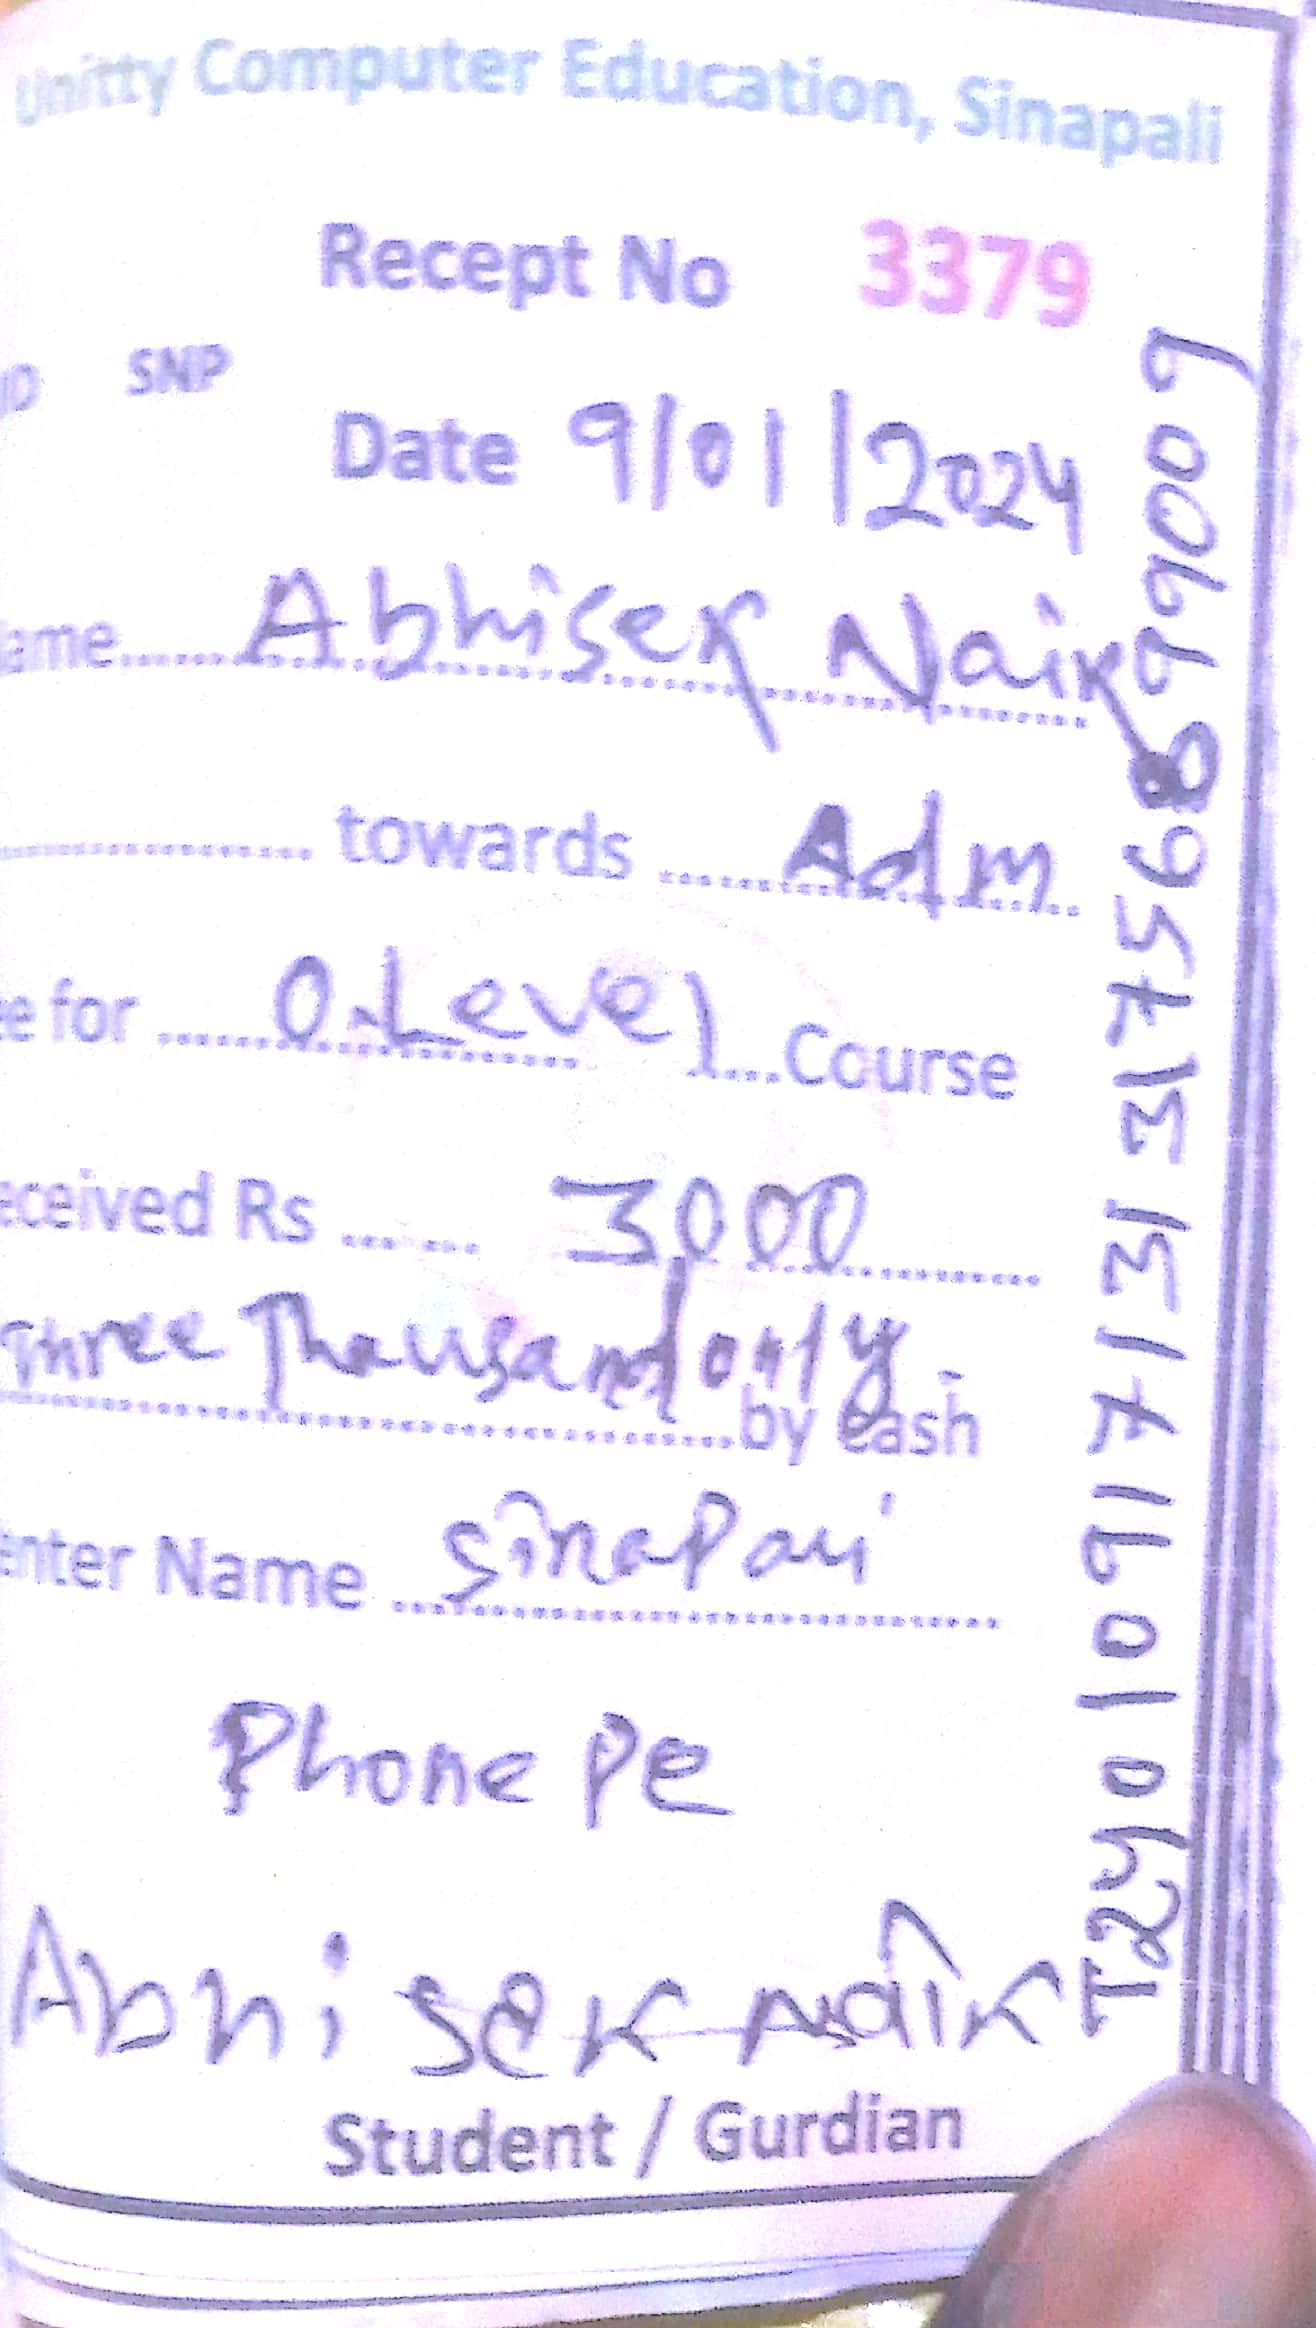 Unitty Computer Education, Sinapali
Recept No 3379
ID SNP
Date 9/01/2024
ame Abhisek Naik
towards Adm
e for O.Level Course
eceived Rs 3000
Three Thousand only.
by cash
enter Name Sinapali
Phone Pe
Abhisek Naik
Student / Gurdian